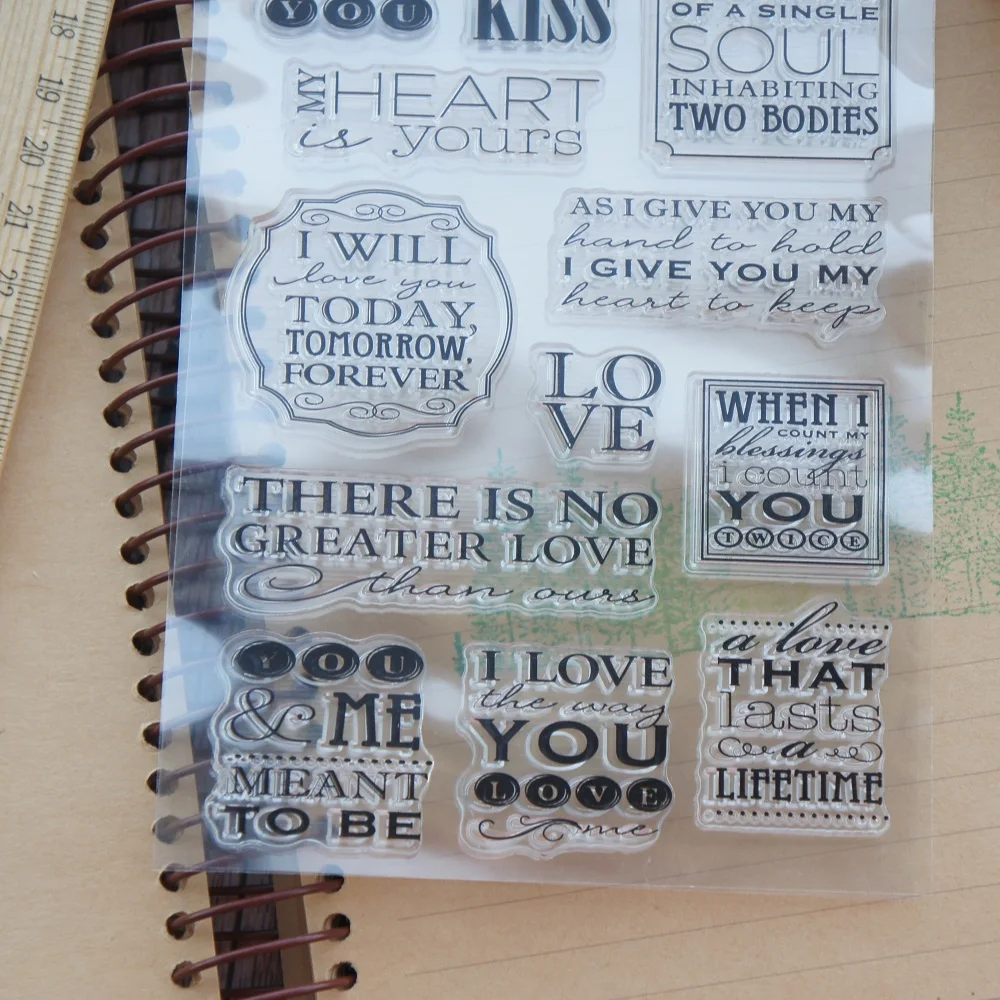 YOU
KISS
OF A SINGLE
SOUL
INHABITING
TWO BODIES
MY HEART
is yours
I WILL
love you
TODAY,
TOMORROW,
FOREVER
AS I GIVE YOU MY
hand to hold
I GIVE YOU MY
heart to keep
LO
VE
WHEN I
COUNT MY
blessings
i count
YOU
TWICE
THERE IS NO
GREATER LOVE
than ours
YOU
& ME
MEANT
TO BE
I LOVE
the way
YOU
LOVE
me
a love
THAT
lasts
a
LIFETIME
18
19
20
21
22